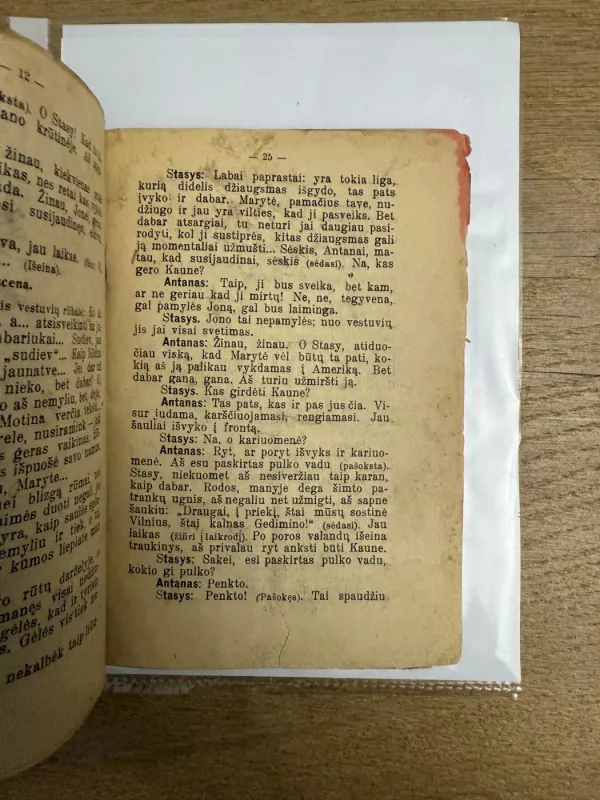 — 12 —
ksta). O Stasy! Kad
ano krūtinėje. Aš
žinau, kiekvienas
ikas, nes retai kas
da. Žinau, Jona,
si susijaudinęs,
va, jau laikas.
... (Išeina).
scena.
is vestuvių rūbais
a... atsisveikinti su
abariukai... Sudiev,
„sudiev“... Kaip
jaunatve... Jei dar
nieko, bet dabar!
o aš nemyliu, bet, deja,
Motina verčia tekėti
rele, nusiramink — jis
s geras vaikinas
išpuošė savo namą.
, Maryte...
ei blizgą rūmai, nei
aimės duoti negali, jei
yra, kaip saulės spin-
emyliu ir tiek, o tu
r kūmos liepiate man
o rūtų darželyje
manęs visai
gėlės, kad ir
s. Gėlės vis tiek
nekalbėk taip
— 25 —
Stasys: Labai paprastai: yra tokia liga,
kurią didelis džiaugsmas išgydo, tas pats
įvyko ir dabar. Marytė, pamačius tave, nu-
džiugo ir jau yra vilties, kad ji pasveiks. Bet
dabar atsargiai, tu neturi jai daugiau pasi-
rodyti, kol ji sustiprės, kitas džiaugsmas gali
ją momentaliai užmušti... Sėskis, Antanai, ma-
tau, kad susijaudinai, sėskis (sėdasi). Na, kas
gero Kaune?
Antanas: Taip, ji bus sveika, bet kam,
ar ne geriau kad ji mirtų! Ne, ne, tegyvena,
gal pamylės Joną, gal bus laiminga.
Stasys. Jono tai nepamylės; nuo vestuvių
jis jai visai svetimas.
Antanas: Žinau, žinau. O Stasy, atiduo-
čiau viską, kad Marytė vėl būtų ta pati, ko-
kią aš ją palikau vykdamas į Ameriką. Bet
dabar gana, gana. Aš turiu užmiršti ją.
Stasys. Kas girdėti Kaune?
Antanas: Tas pats, kas ir pas jus čia. Vi-
sur judama, karščiuojamasi, rengiamasi. Jau
šauliai išvyko į frontą.
Stasys: Na, o kariuomenė?
Antanas: Ryt, ar poryt išvyks ir kariuo-
menė. Aš esu paskirtas pulko vadu (pašoksta).
Stasy, niekuomet aš nesiveržiau taip karan,
kaip dabar. Rodos, manyje dega šimto pa-
trankų ugnis, aš negaliu net užmigti, aš sapne
šaukiu: „Draugai, į priekį, štai mūsų sostinė
Vilnius, štai kalnas Gedimino!“ (sėdasi). Jau
laikas (žiūri į laikrodį). Po poros valandų išeina
traukinys, aš privalau ryt anksti būti Kaune.
Stasys: Sakei, esi paskirtas pulko vadu,
kokio gi pulko?
Antanas: Penkto.
Stasys: Penkto! (Pašokęs). Tai spaudžiu